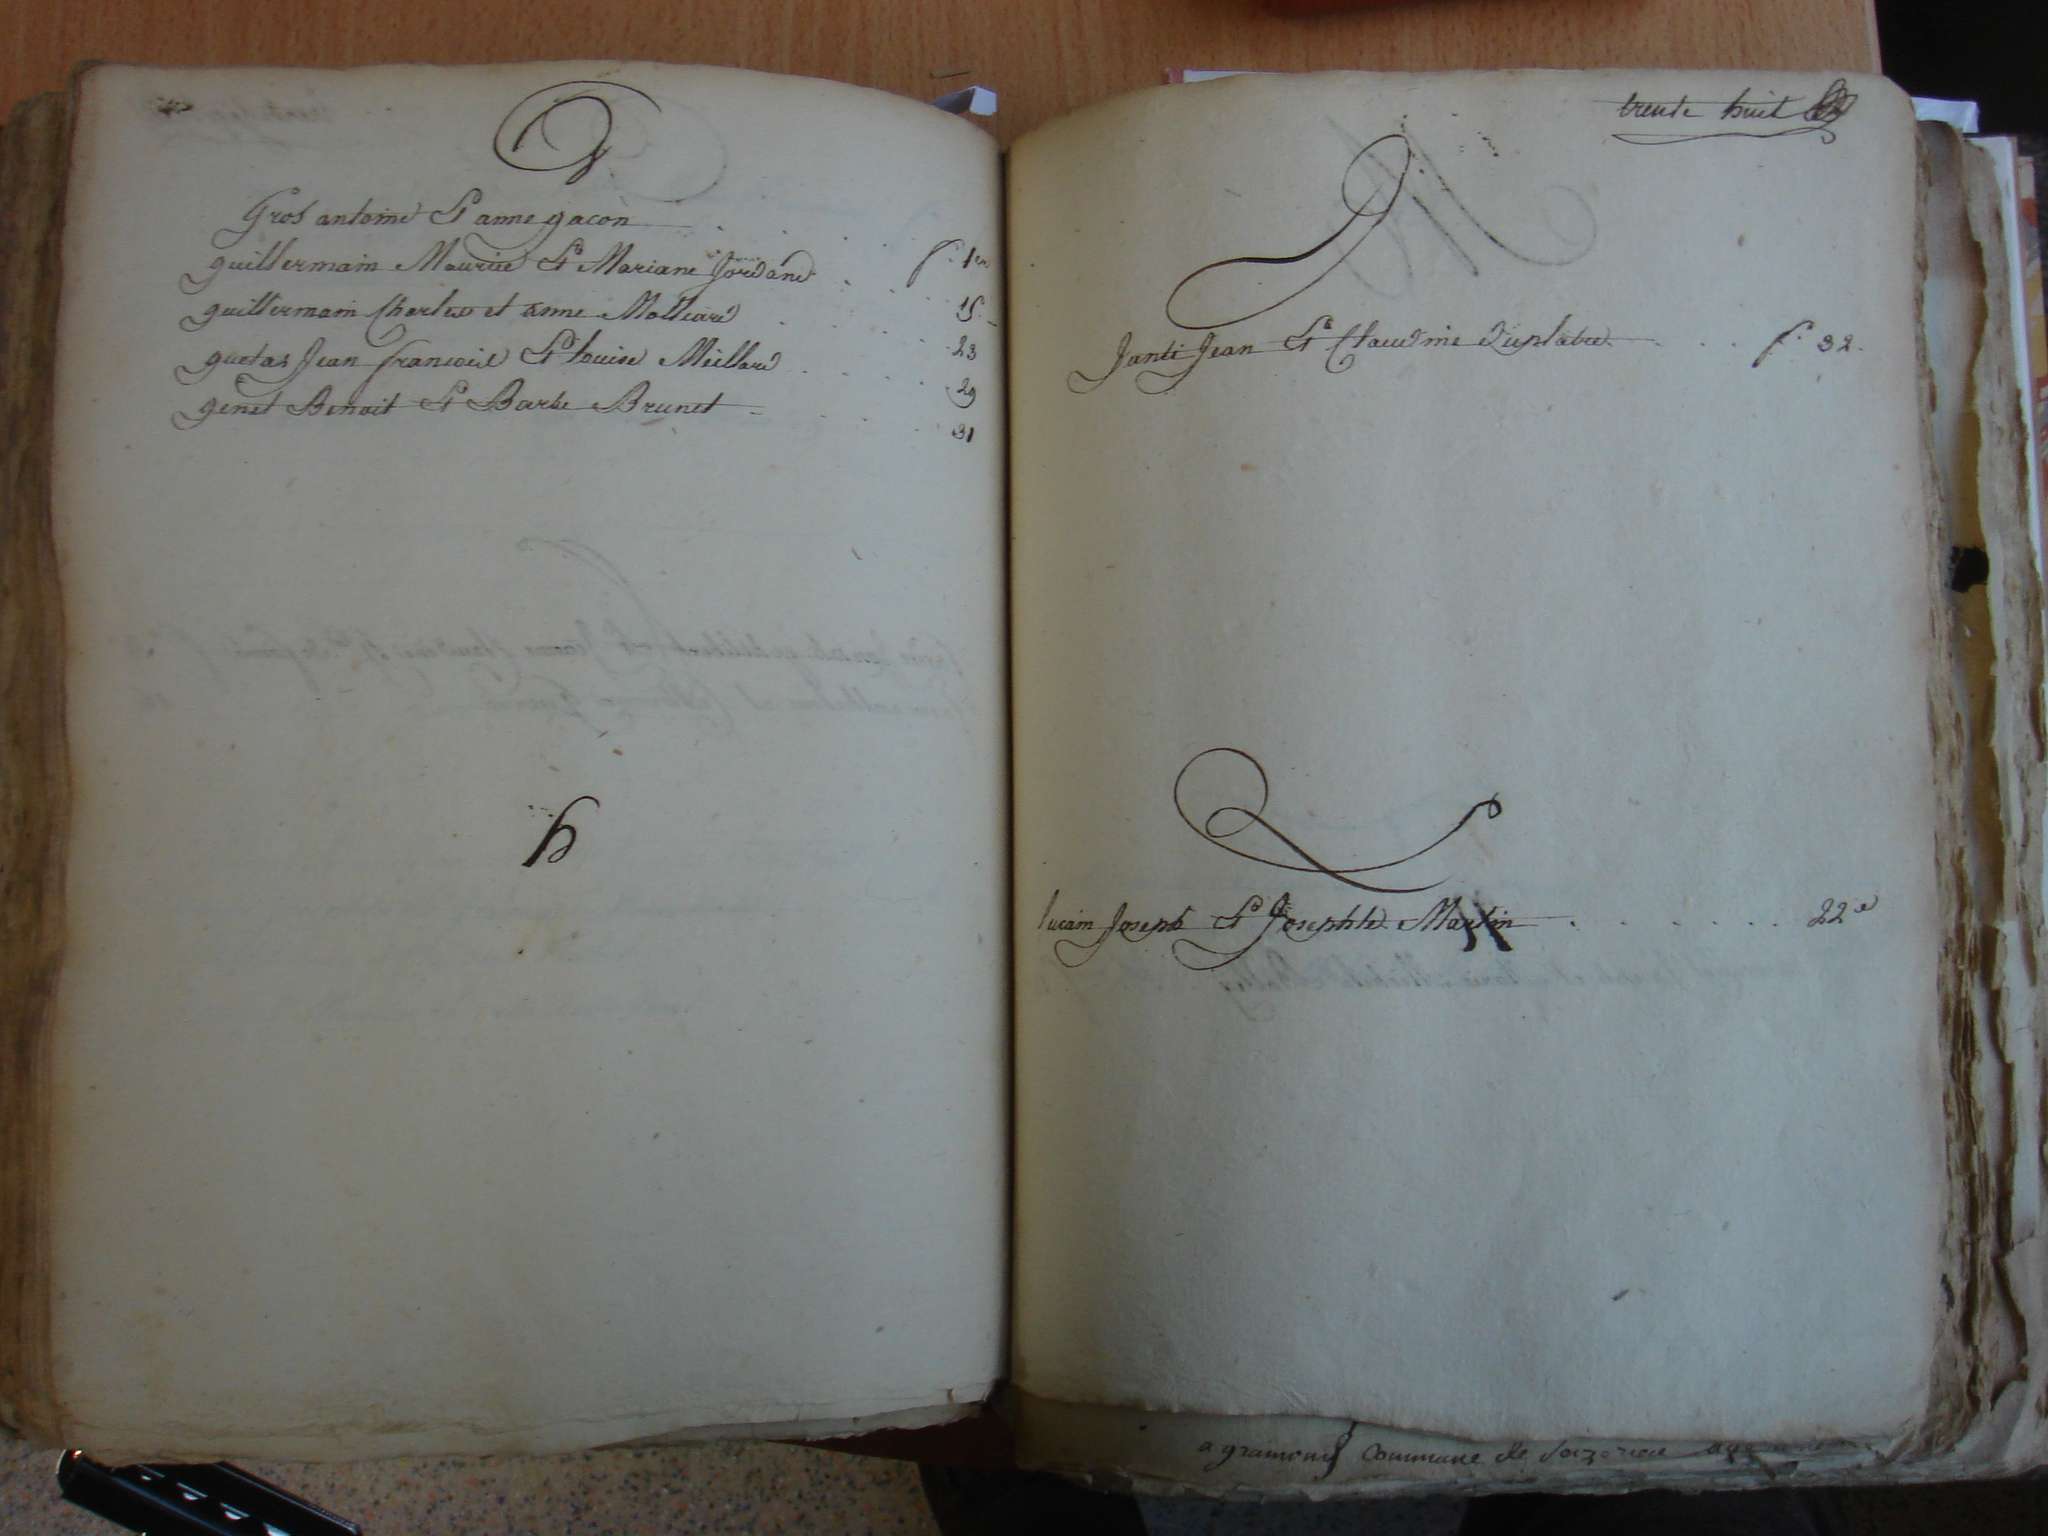 G
Gros antoine Et anne gacon f.o 1er
guillermain Maurice Et Mariane Jordand 15
guillermain Charles et anne Molliard 23
guetas Jean francois Et louise Meillard 29
genet Benoit Et Barbe Brunet 31
h
trente huit
J
Janti Jean Et Claudine Duplatre f.o 32
L
lucain Joseph Et Josephte Martin 22e
a gramond Commune de